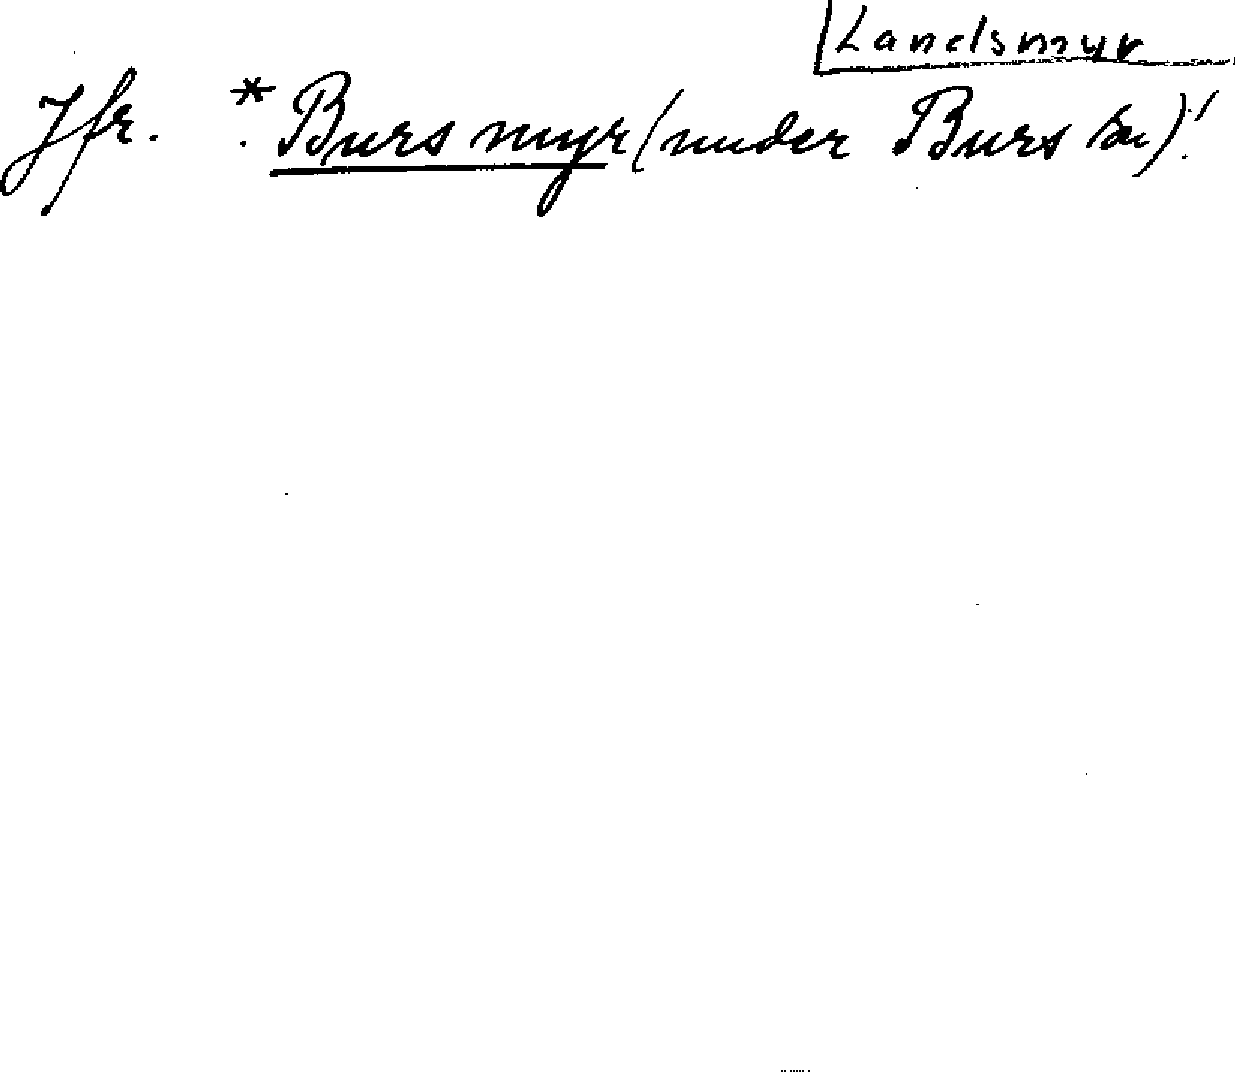 Landsmyr
Jfr. * Bursmyr (under Burs sn)!